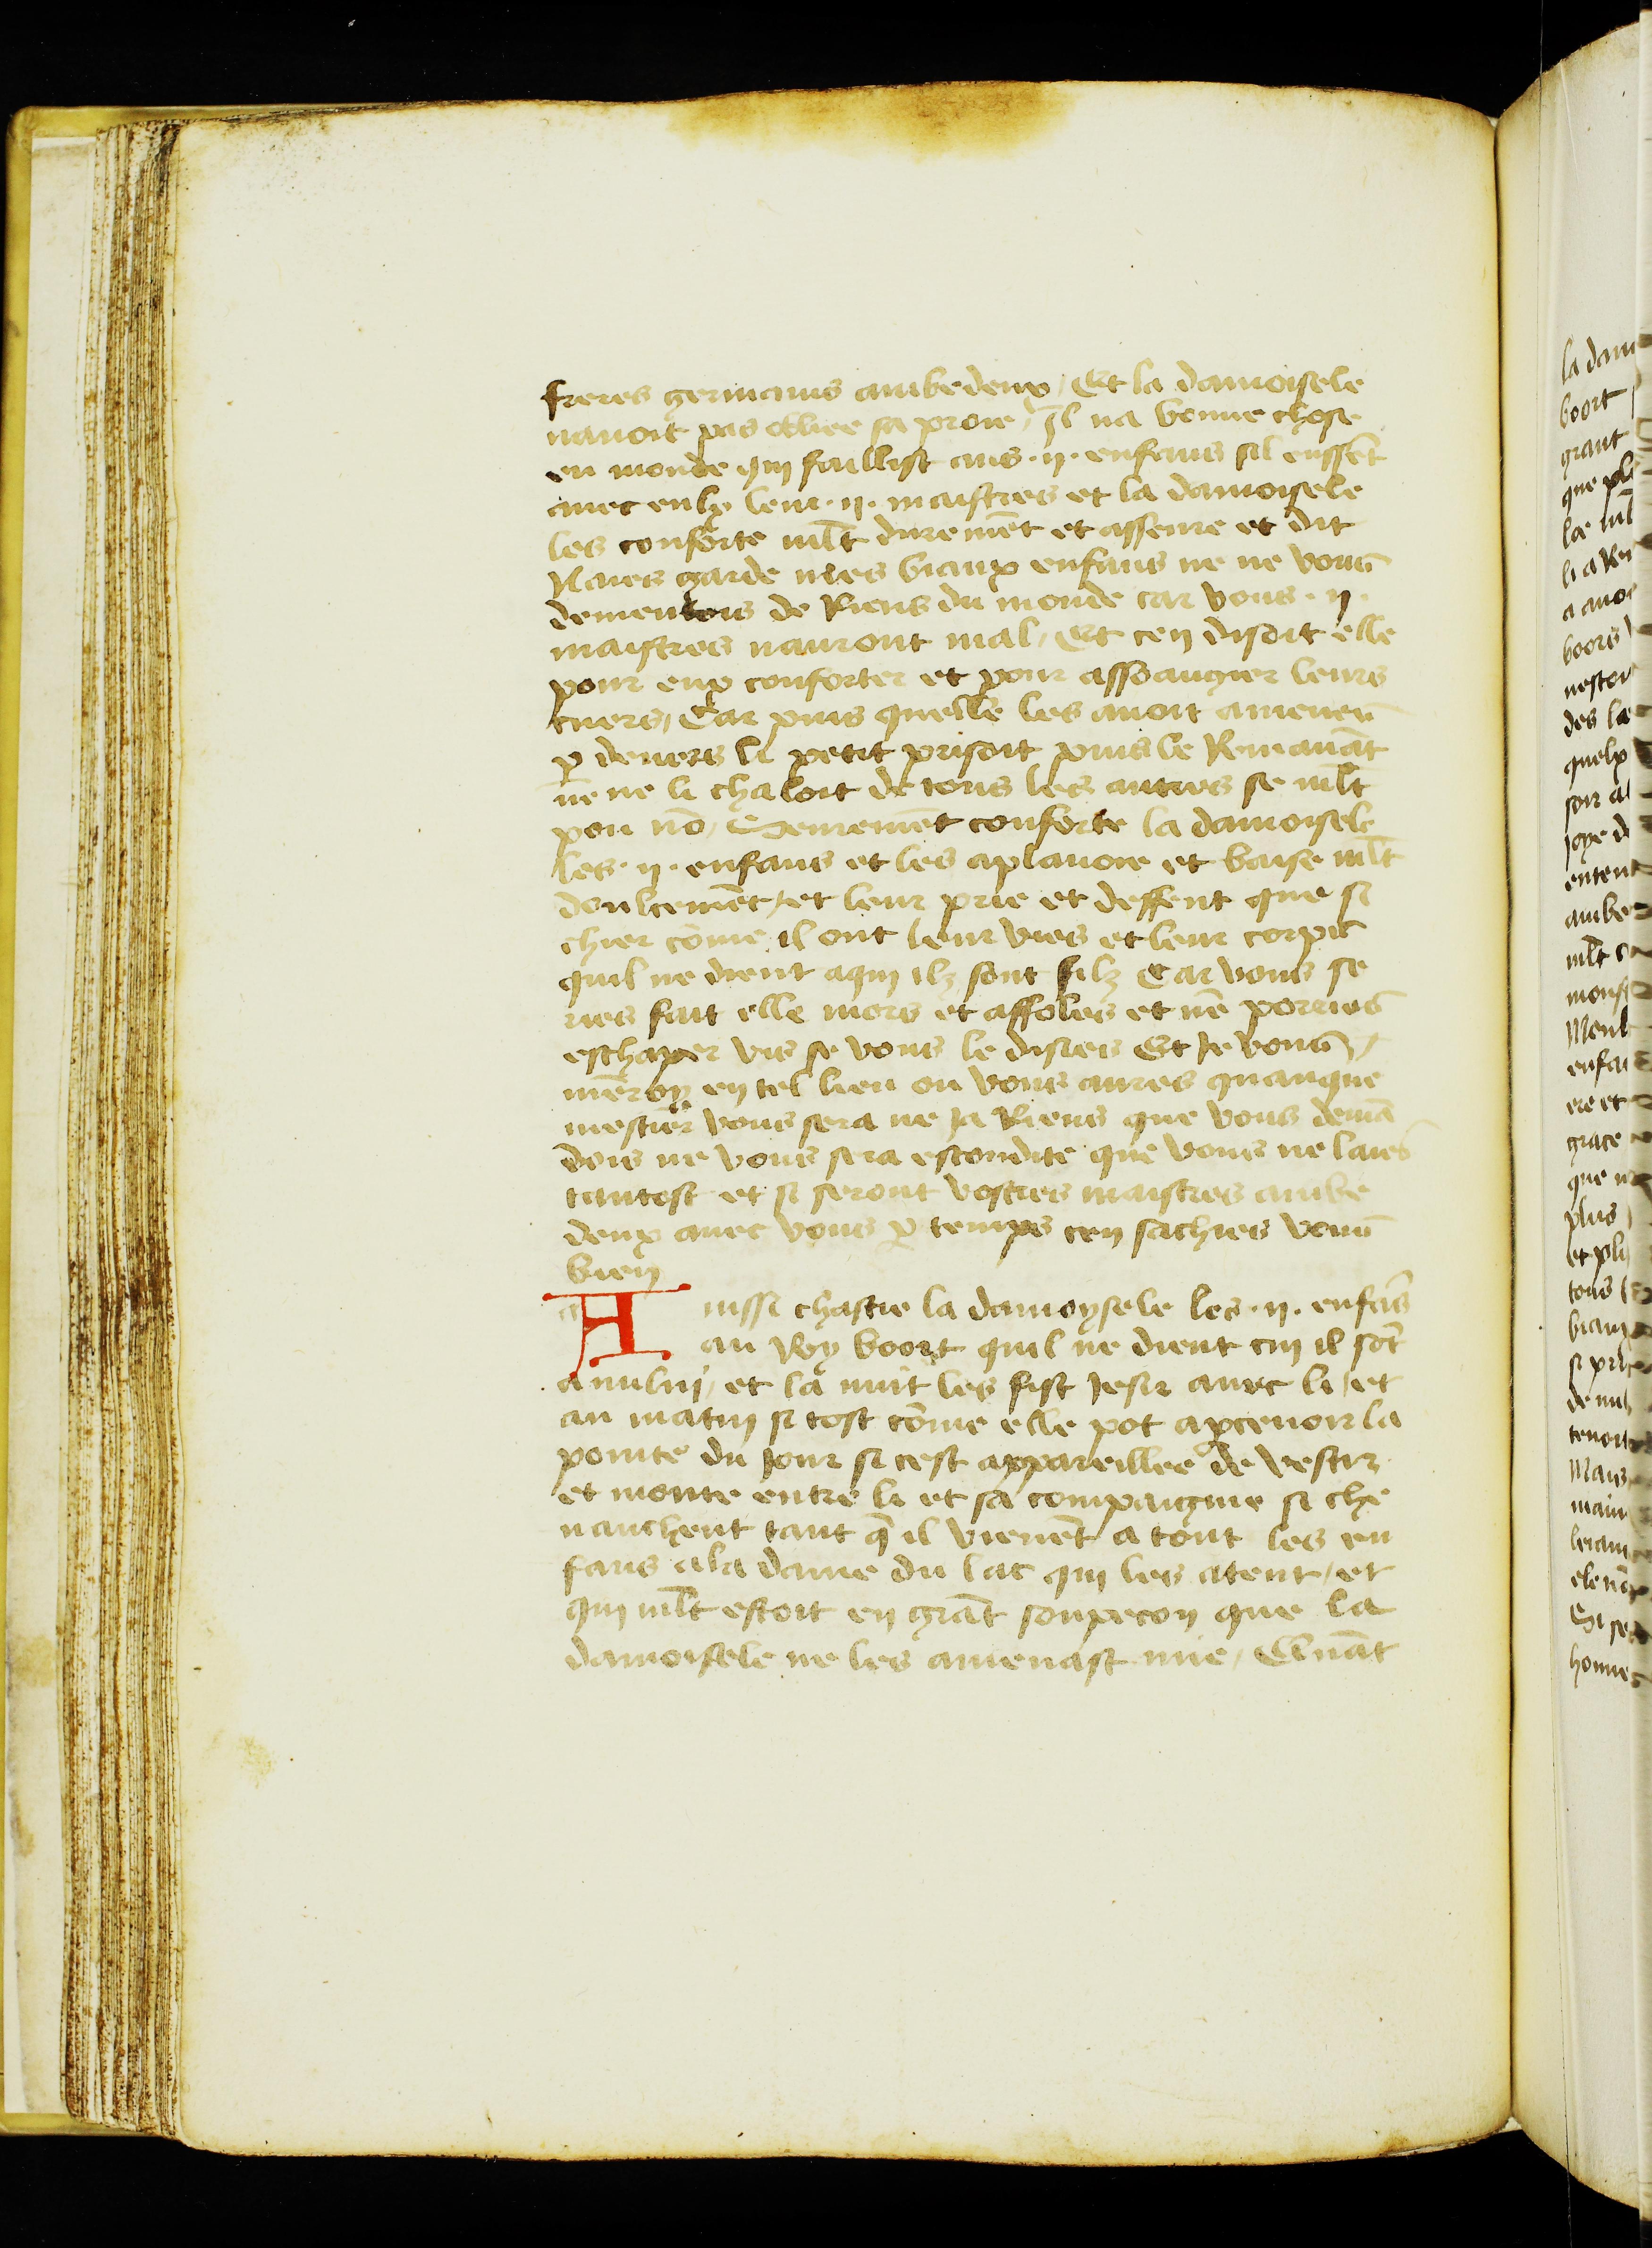 freres germains ambedeux / Et la damoisele
nauoit pas obliee sa proie / Il na bonne chose
en monde qui faillist aus .ii. enfans sil eussēt
auec eulx leur .ii. maistres et la damoisele
les conforte mlt̄ duremēt et asseure et dit
Naies garde mes biaux enfans ne ne vous
dementois de Riens du monde car vous .ii.
maistres nauront mal / Et cen disoit elle
pour eux conforter et pour assoaugier leurs
cuers / Car puis quelle les auoit amenen
p̱ deuers li petit prisoit puis le Remanāt
ne ne li chaloit de tous les autres se mlt̄
pou nō / Seuremēt conforte la damoisele
les .ii. enfans et les aplanoie et baise mlt̄
doulcemēt / et leur prie et deffent que si
chier cōme il ont leur vies et leur corps
quil ne dient aqui ilz sont filz Car vous se
ries fait elle mors et affoles et nē porries
eschaper vis se vous le disies Et Je vous /
mēroy en tel lieu ou vous aures quanque
mestier vous sera ne Ja Riens que vous demā
dois ne vous sera escondite que vous ne laies
tantost et si seront vostres maistres ambe
deux auec vous p̱ temps cen sachies vous
bien
A inssi chastie la damoysele les .ii. enfās
au Roy boort quil ne dient cui il sōt
a nului / et la nuit les fist Jesir auec li / et
au matin si tost cōme elle pot ap̱ceuoir la
pointe du Jour si cest appareillee de vestir
et monte entre li et sa compaignie si che
uauchent tant q̄ il vienēt a tout les en
fans a la dame du lac qui les atent / et
qui mlt̄ estoit en grāt soupecon que la
damoisele ne les amenast mie / Quāt
la dam
boort
grant
que pl
le ml
li a Re
a auoi
boors
nestoi
des le
quelx
son a
Joye d
enten
ambe
mlt c
monst
Meul
enfa
ere et
grace
que n
plus
et pl
tous
biau
si pri
de nul
tenoi
Mais
main
lerain
ele nā
Si se
honne